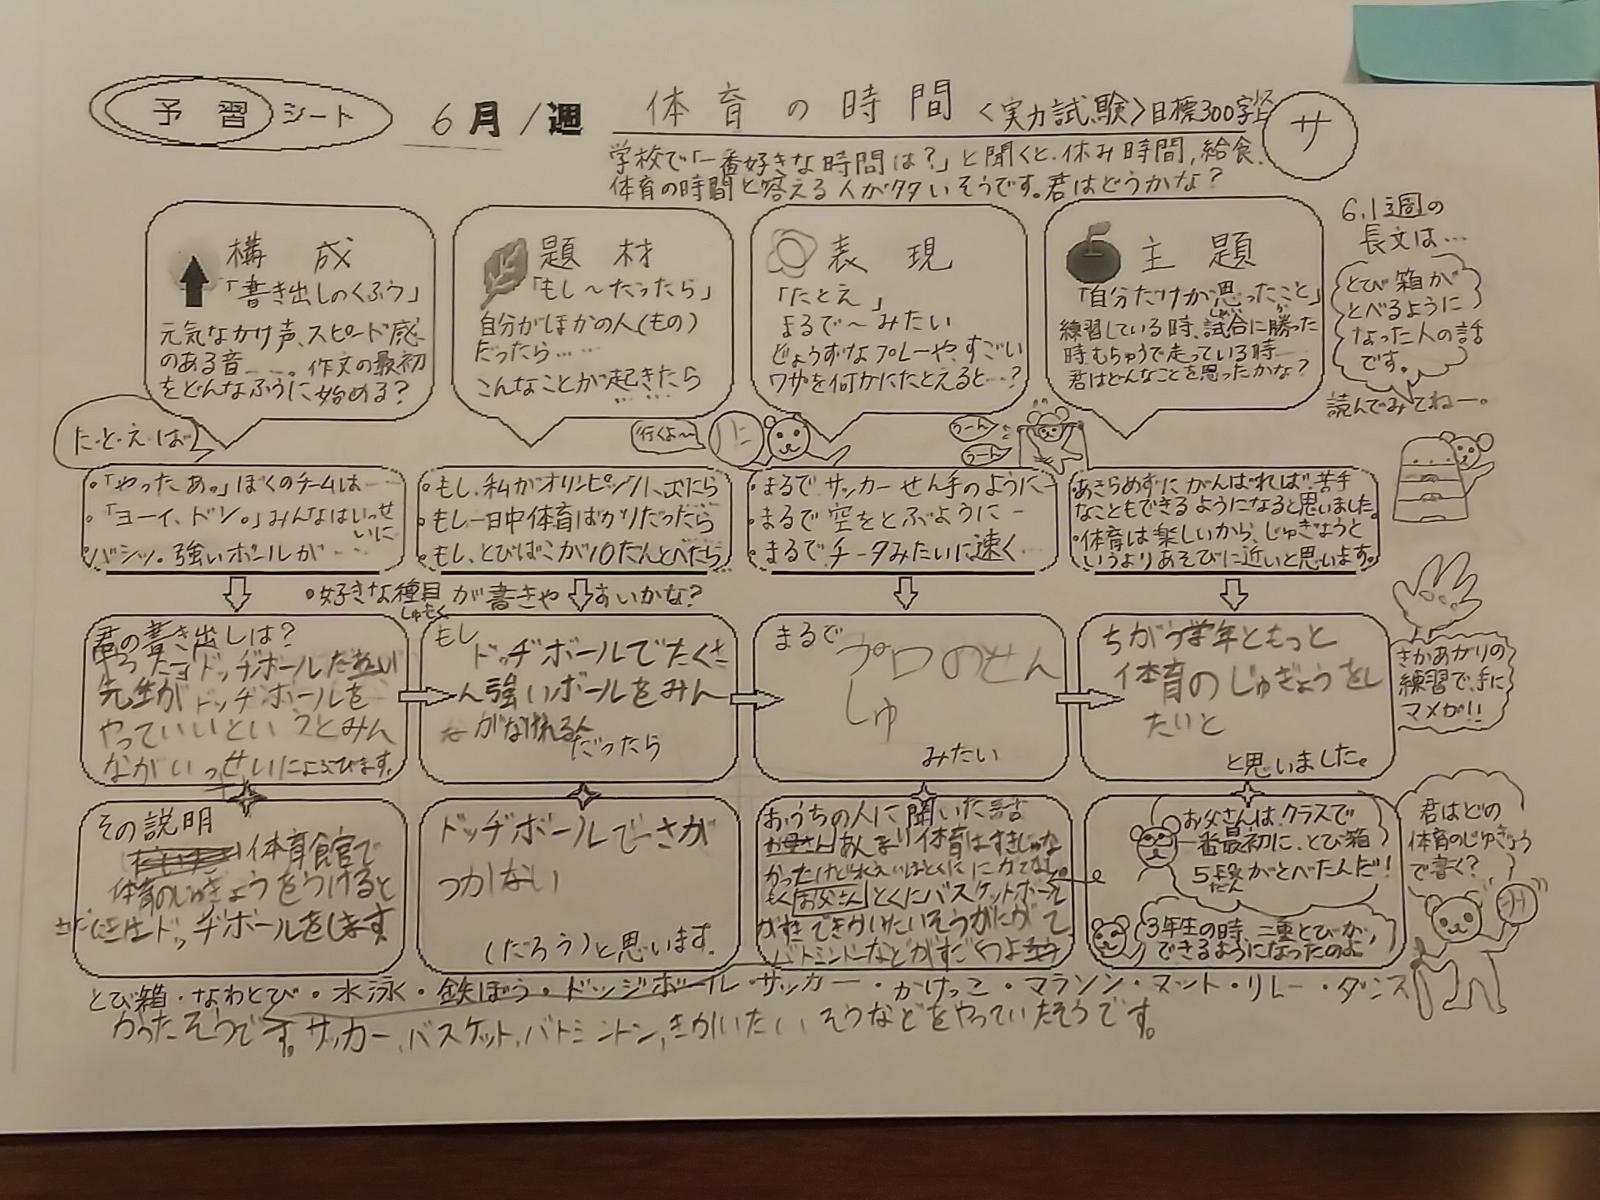 予習シート
6月1週
体育の時間
<実力試験>目標300字
サ
学校で「一番好きな時間は?」と聞くと、休み時間、給食、
体育の時間と答える人が多いそうです。君はどうかな?
構成
「書き出しのくふう」
元気なかけ声、スピード感
のある音……。作文の最初
をどんなふうに始める?
題材
「もし〜だったら」
自分がほかの人(もの)
だったら……
こんなことが起きたら
……
表現
「たとえ」
まるで〜みたい
じょうずなプレーや、すごい
ワザを何かにたとえると…?
主題
「自分だけが思ったこと」
練習している時、試合に勝った
しあい
時むちゅうで走っている時…
君はどんなことを思ったかな?
6.1週の
長文は…
とび箱が
とべるように
なった人の話
です。
読んでみてねー。
た・と・え・ば
・「やったあ。」ぼくのチームは……
・「ヨーイ、ドン。」みんなはいっせ
いに…
バシッ。強いボールが……
行くよ〜
・もし、私がオリンピックに出たら
・もし一日中体育ばかりだったら
・もし、とびばこが10だんとべたら…
うーん
うーん
・まるでサッカーせん手のように
・まるで空をとぶように…
・まるでチータみたいに速く…
あきらめずにがんばれば苦手
なこともできるようになると思いました。
・体育は楽しいから、じゅぎょうと
いうよりあそびに近いと思います。
・好きな種目が書きやすいかな?
しゅもく
君の書き出しは?
先生がドッヂボールを
やっていいというとみん
ながいっせいによろびます。
もし
ドッヂボールでたくさ
ん強いボールをみん
だったら
まるで
プロのせん
しゅ
みたい
ちがう学年ともっと
体育のじゅぎょうをし
たいと
と思いました。
さかあがりの
練習で、手に
マメが!!
その説明
体育館で
体育のじゅぎょうをうけると
ドッヂボールをします
ドッヂボールでさが
つかない
(だろう)と思います。
おうちの人に聞いた話
お母さんあんまり体育はすきじゃな
お父さんとくにバスケットボールが
バトミントンなどがすごくつよ
お父さんはクラスで
一番最初に、とび箱
5段がとべたんだ!
だん
3年生の時、二重とびが、
できるようになったのよ
君はどの
体育のじゅぎょう
で書く?
とび箱・なわとび・水泳・鉄ぼう・ドッジボール・サッカー・かけっこ・マラソン・マット・リレー・ダンス
かったそうです。サッカー、バスケット、バトミントン、きかいたいそうなどをやっていたそうです。